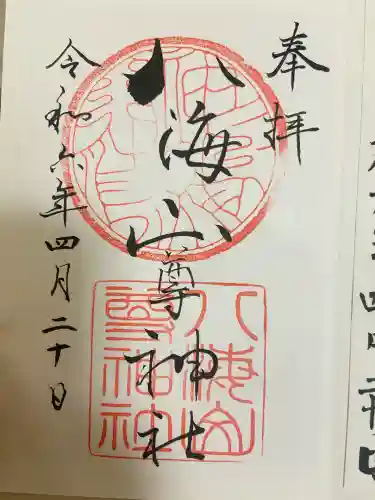 奉拝
八海山尊神社
令和六年四月二十日
八海山
尊神社